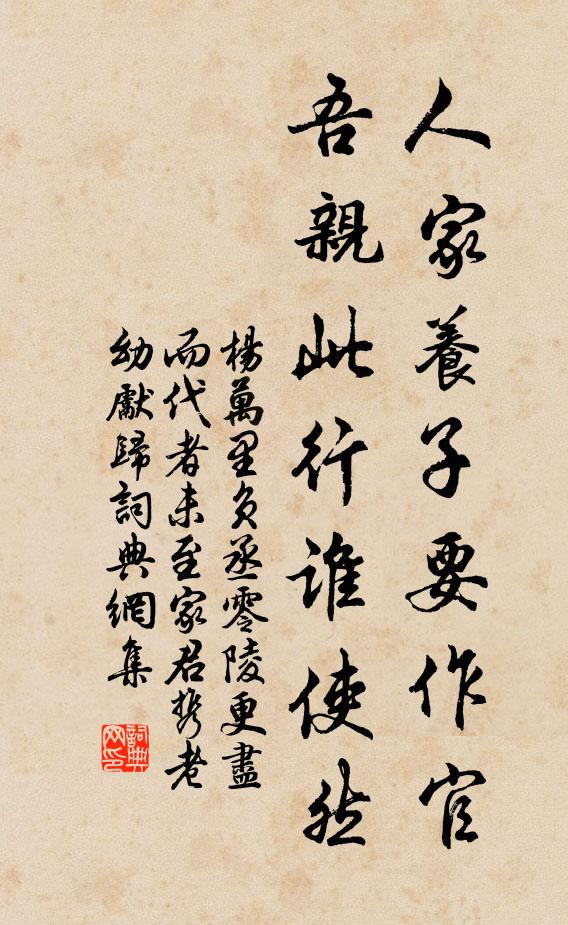 人家養子要作官
吾親此行誰使然
楊萬里負丞零陵更盡
而代者未至家君携老
幼獻歸詞典網集
詞典网印